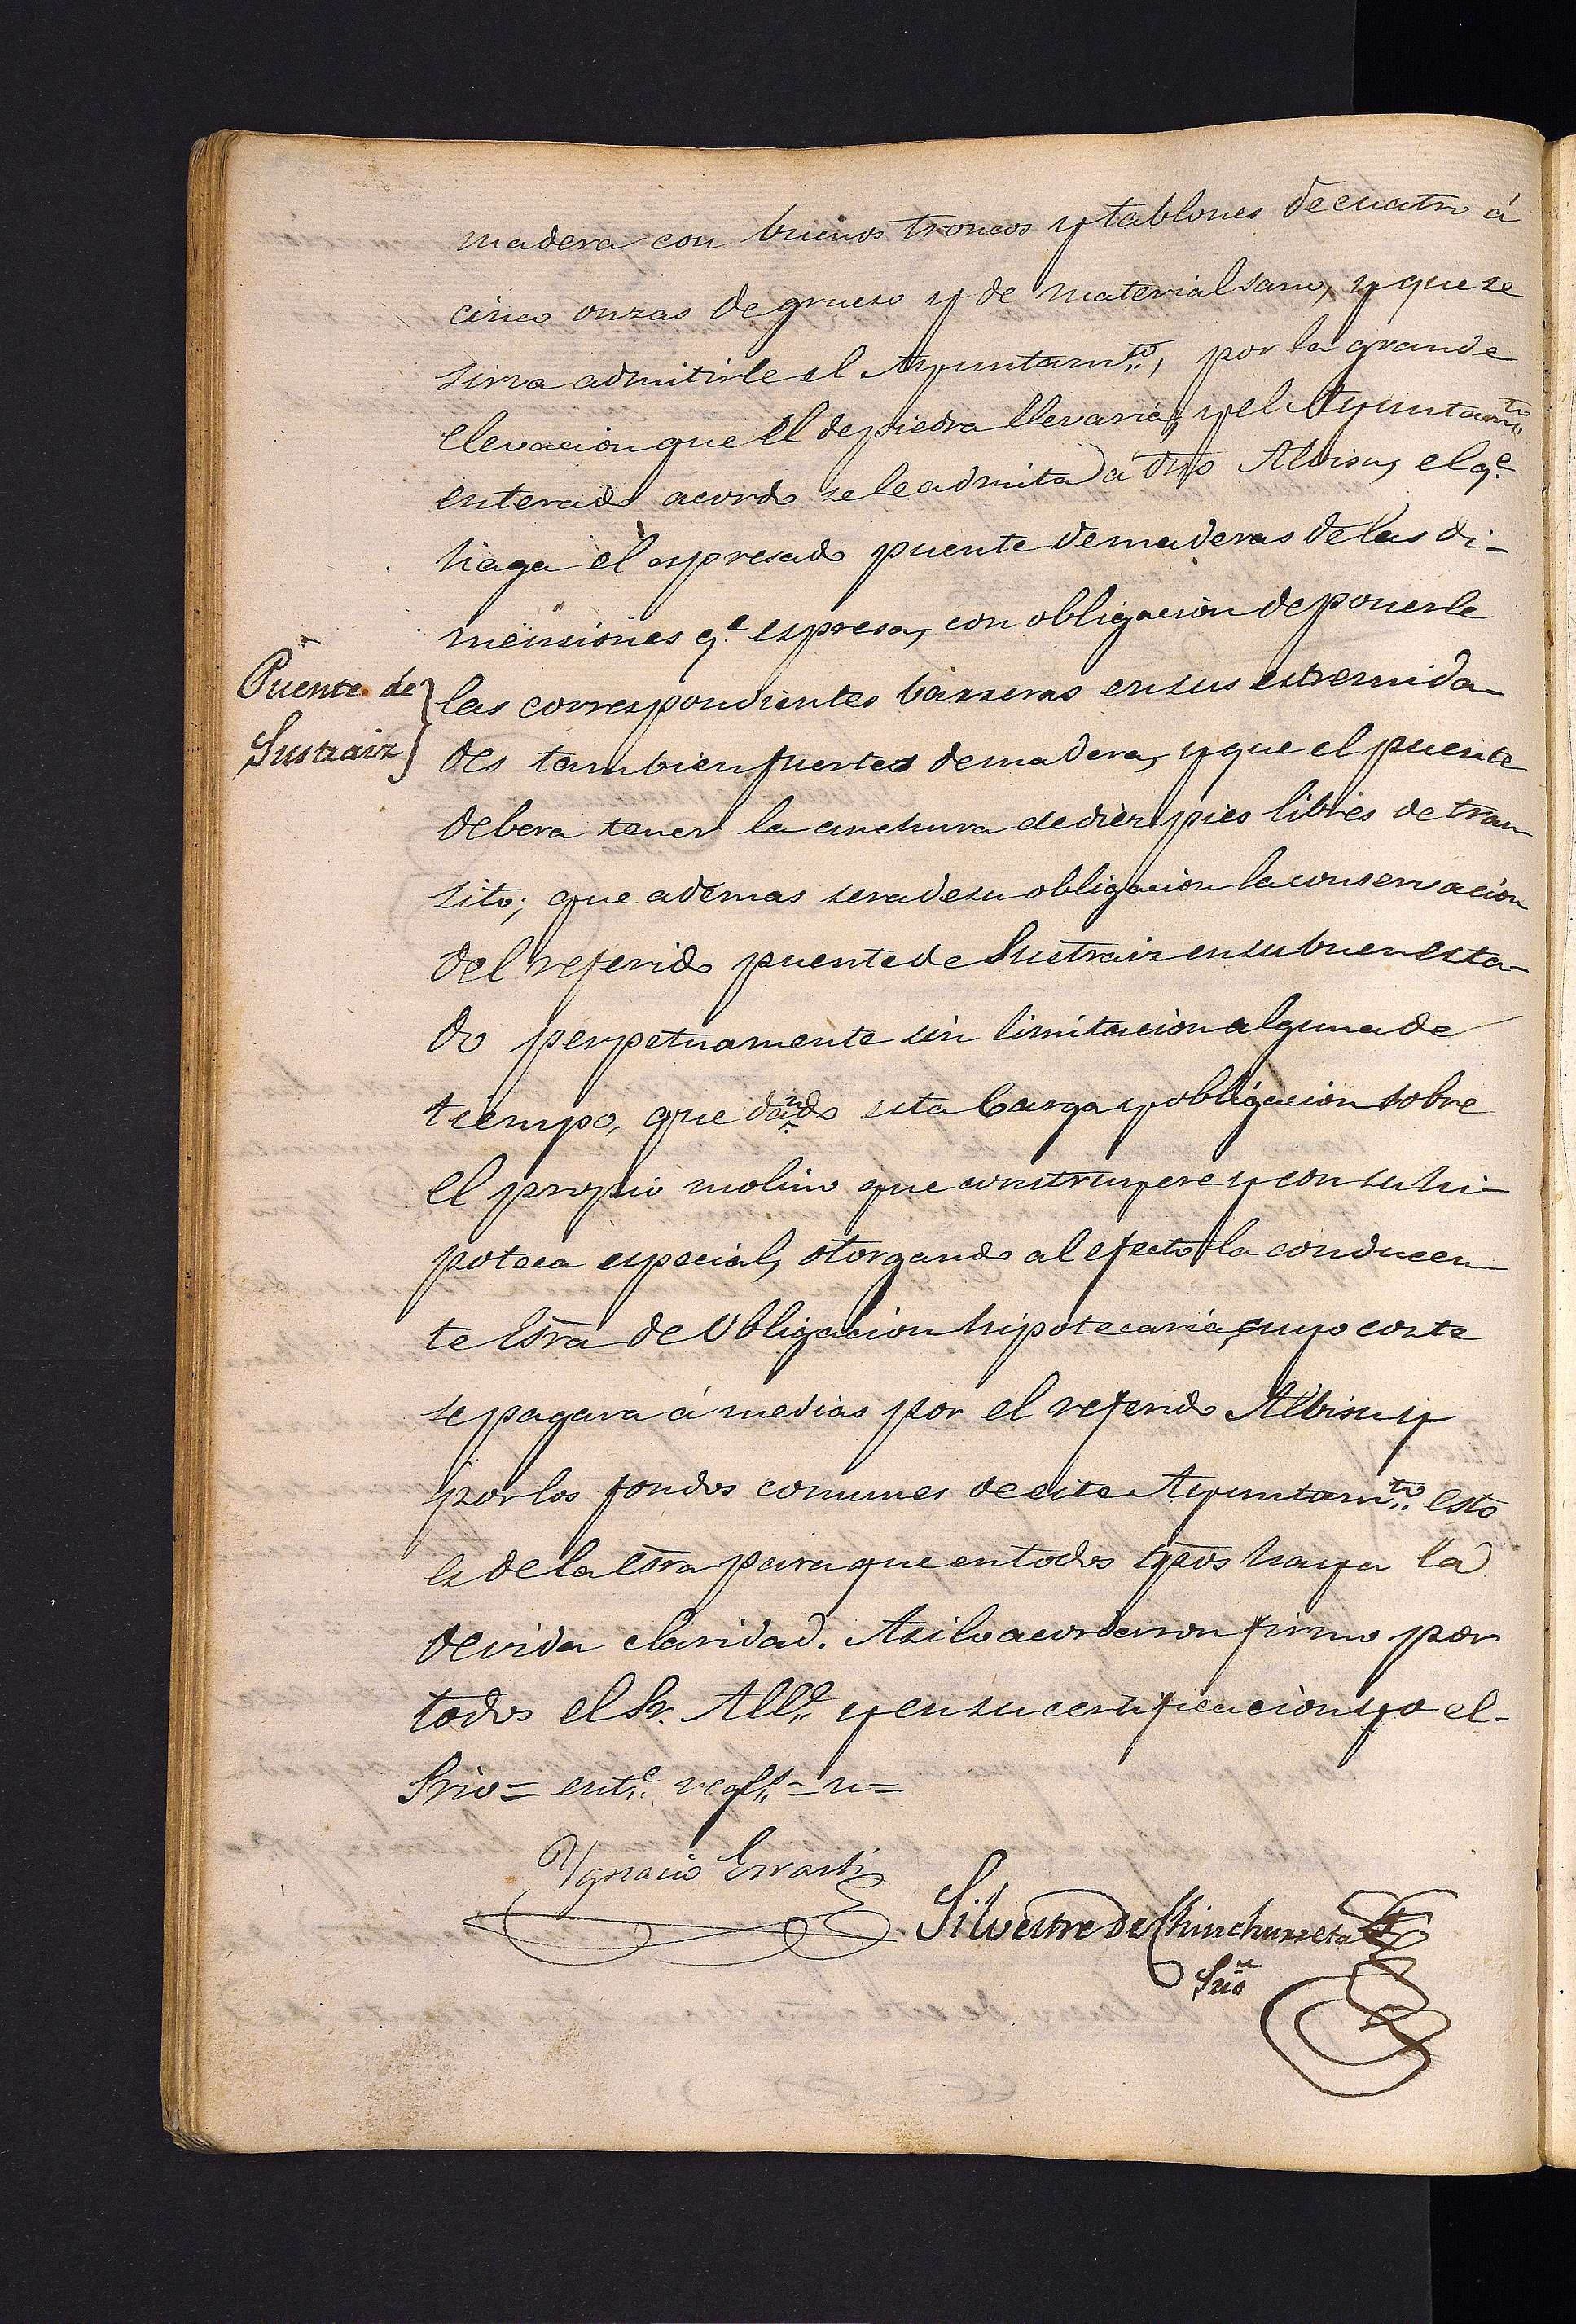 madera con buenos troncos y tablones de cuatro á
cinco onzas de grueso y de material sano, y que se
sirva admitirle el Ayuntamto, por la grande
elevacion que el de piedra llevaria, y el Ayuntamto
enterado acordo se le admita á dho Albisu, el qe
haga el espresado puente de maderas de las di-
mensiones qe espresa, con obligacion de ponerle
Puente de
Sustraiz
las correspondientes barreras en sus estremida-
des tambien fuertes de madera, y que el puente
debera tener la anchura de diez pies libres de tran-
sito; que ademas sera de su obligacion la conservacion
del referido puente de Sustraiz en su buen esta-
do perpetuamente sin limitacion alguna de
tiempo, que dando esta carga y obligacion sobre
el propio molino que construyere y con su hi-
poteca especial, otorgando al efecto la conducen-
te Esra de Obligacion hipotecaria, cuyo coste
se pagara á medias por el referido Albisu y
por los fondos comunes de este Ayuntamto esto
es de la esra para que en todos tpos haya la
devida claridad. Asi lo acordaron firmo por
todos el Sr. Alle y en su certificacion yo el-
Srio = ente regls = n =
Ygnacio Errasti
Silvestre de Chinchurreta
Srio